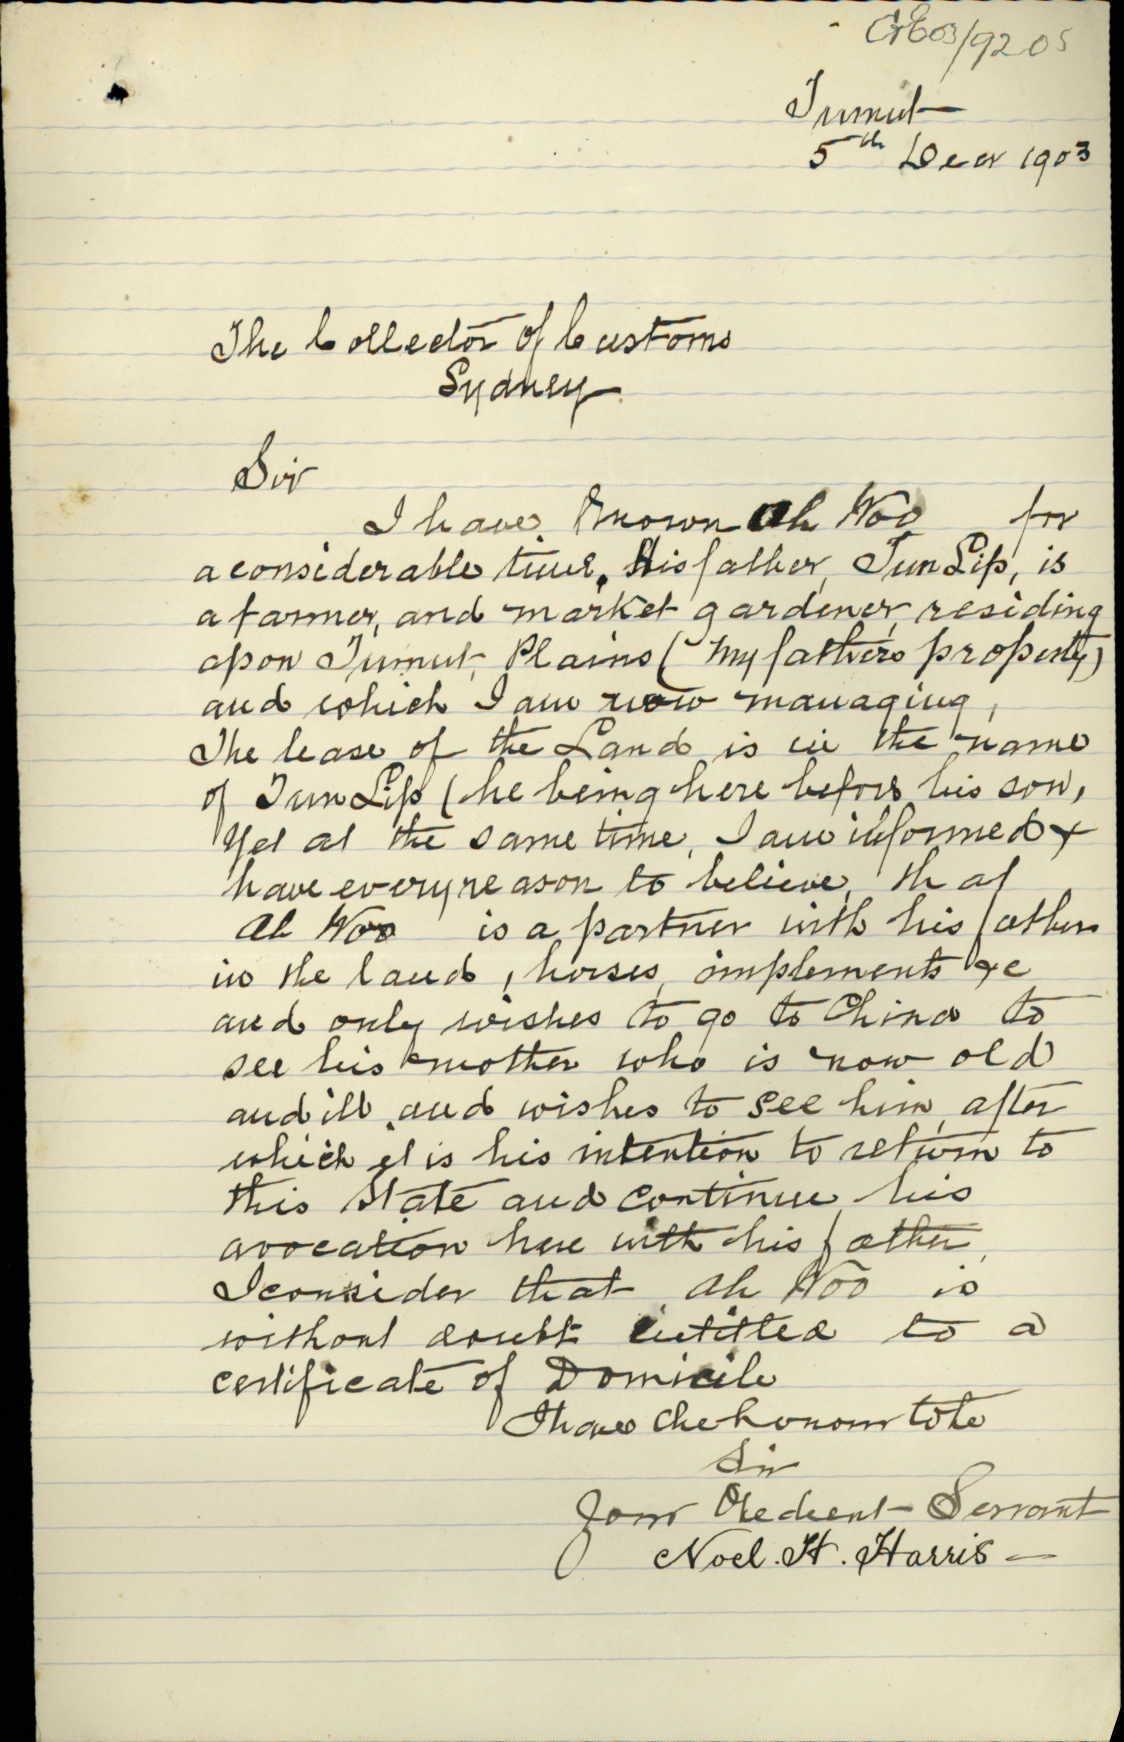 C&E03/9205
Tumut
5th Decr 1903
The Collector of Customs
Sydney
Sir
I have Known Ah Woo for
a considerable time. His father, Tun Lip, is
a farmer, and market gardener, residing
upon Tumut Plains (My fathers property)
and which I am now managing,
The lease of the Land is in the name
of Tun Lip (he being here before his son,
Yet at the same time, I am informed &
have every reason to believe, that
Ah Woo is a partner with his father
in the land, horses, implements &c
and only wishes to go to China to
see his mother who is now old
and ill and wishes to see him, after
which it is his intention to return to
this State and continue his
avocation here with his father,
I consider that Ah Woo is
without doubt entitled to a
certificate of Domicile
I have the honour to be
Sir
Your Obedient Servant
Noel. H. Harris